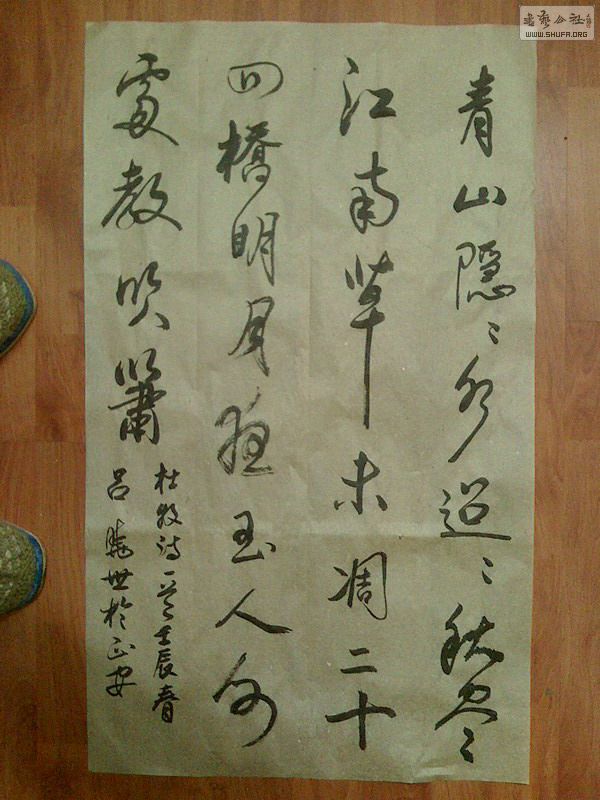 青山隐〻水迢〻秋尽
江南草未凋二十
四橋明月夜玉人何
處教吹簫
杜牧诗一首壬辰春
吕世於正安
書藝公社
WWW.SHUFA.ORG